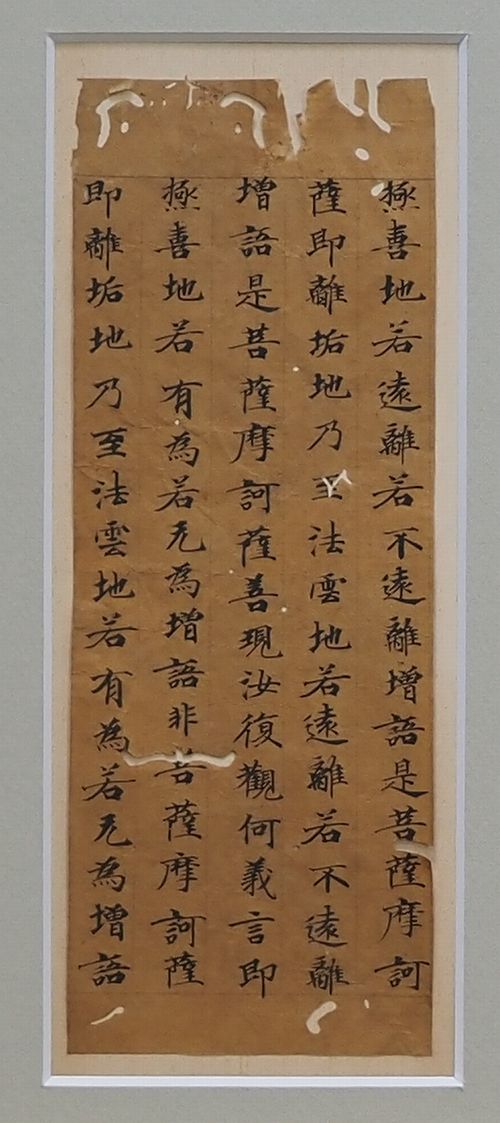 極喜地若遠離若不遠離增語是菩薩摩訶
薩即離垢地乃至法雲地若遠離若不遠離
增語是菩薩摩訶薩善現汝復觀何義言即
極喜地若有為若无為增語非菩薩摩訶薩
即離垢地乃至法雲地若有為若无為增語